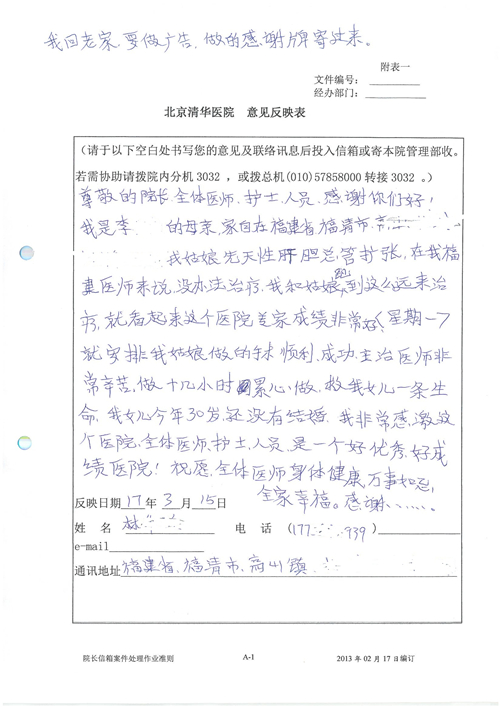 我回老家.要做广告.做的感谢牌寄过来。
附表一
文件编号:
经办部门:
北京清华医院 意见反映表
(请于以下空白处书写您的意见及联络讯息后投入信箱或寄本院管理部收。
若需协助请拨院内分机 3032 ，或拨总机(010)57858000 转接 3032 。)
尊敬的院长.全体医师.护士.人员.感谢你们好!
我是李 的母亲,家自在福建省福清市.高
我姑娘先天性肝胆总管扩张,在我福
建医师来说,没办法治疗.我和姑娘 到这么远来治
疗,就看起来这个医院专家成绩非常好(星期一)
就安排我姑娘做的手术顺利.成功.主治医师非
常辛苦.做十几小时 累心做.救我女儿一条生
命.我女儿今年30岁,还没有结婚.我非常感激这
个医院.全体医师.护士.人员.是一个好优秀.好成
绩医院!祝愿.全体医师身体健康.万事如意.
全家幸福。感谢......
反映日期17年3月15日
姓 名 林 电 话 (177 939)
e-mail
通讯地址福建省.福清市.高山镇
院长信箱案件处理作业准则 A-1 2013 年 02 月 17 日编订